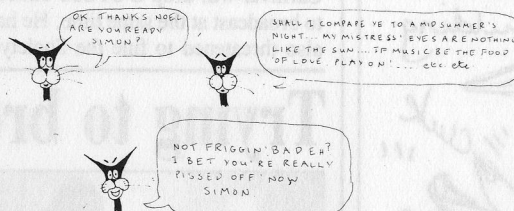 OK. THANKS, NOEL
ARE YOU READY
SIMON?
SHALL I COMPARE YE TO A MIDSUMMER'S
NIGHT... MY MISTRESS' EYES ARE NOTHING
LIKE THE SUN.... IF MUSIC BE THE FOOD
OF LOVE, PLAY ON'.... etc. etc
NOT FRIGGIN' BAD EH?
I BET YOU'RE REALLY
PISSED OFF NOW
SIMON